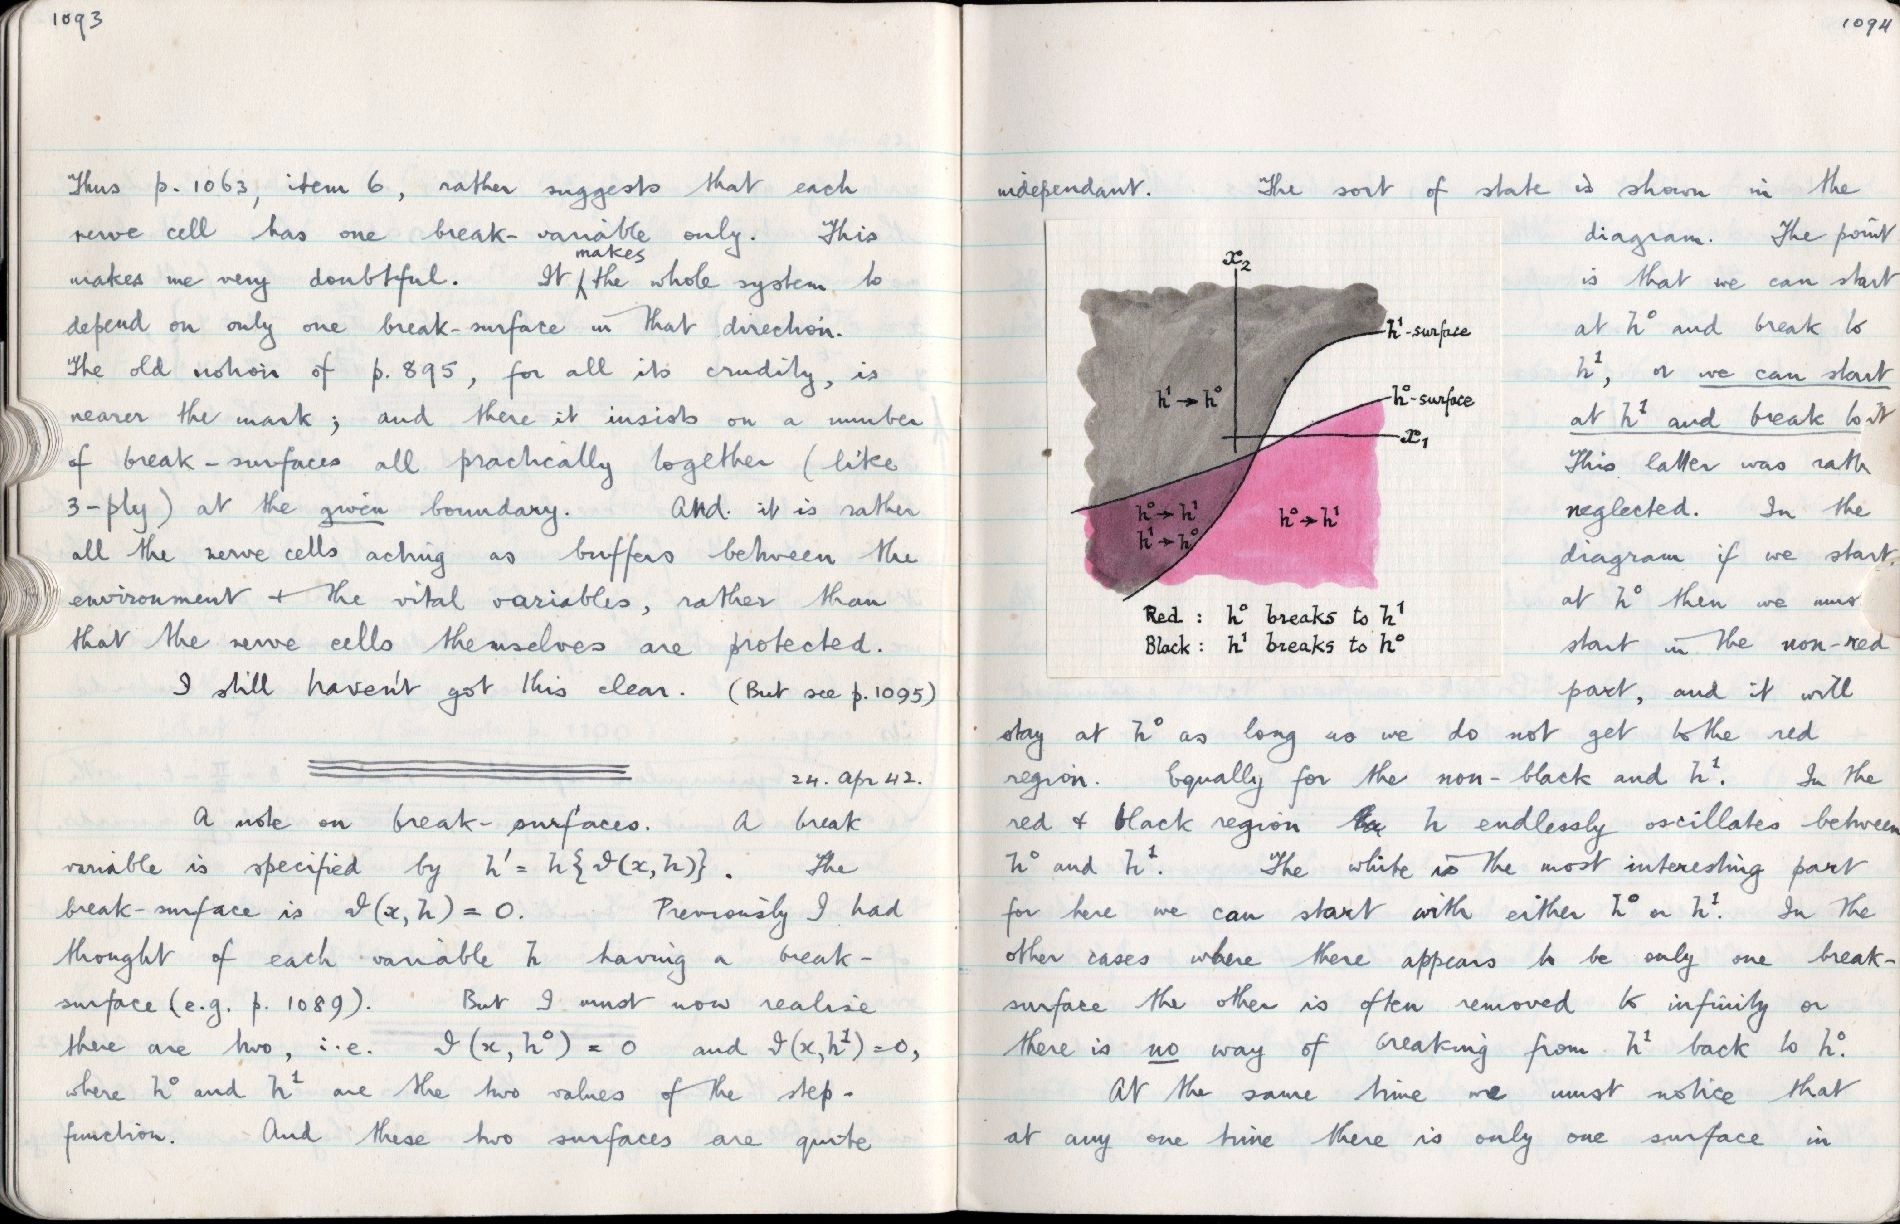 1093
Thus p. 1063, item 6, rather suggests that each
nerve cell has one break-variable only. This
makes
makes me very doubtful. It the whole system to
depend on only one break-surface in that direction.
The old notion of p. 895, for all its crudity, is
nearer the mark; and there it insists on a number
of break-surfaces all practically together (like
3-ply) at the given boundary. And it is rather
all the nerve cells acting as buffers between the
environment + the vital variables, rather than
that the nerve cells themselves are protected.
I still haven't got this clear. (But see p. 1095)
24. Apr 42.
A note on break-surfaces. A break
variable is specified by h' = h{ϑ(x,h)}. The
break-surface is ϑ(x,h) = 0. Previously I had
thought of each variable h having a break-
surface (e.g. p. 1089). But I must now realise
there are two, i.e. ϑ(x,h⁰) = 0 and ϑ(x,h¹) = 0,
where h⁰ and h¹ are the two values of the step-
function. And these two surfaces are quite
1094
independant. The sort of state is shown in the
diagram. The point
is that we can start
at h⁰ and break to
h¹, or we can start
at h¹ and break to it
This latter was rath
neglected. In the
diagram if we start
at h⁰ then we mus
start in the non-red
part, and it will
x₂
h¹-surface
h¹ → h⁰
h⁰-surface
x₁
h⁰ → h¹
h¹ → h⁰
h⁰ → h¹
Red : h⁰ breaks to h¹
Black : h¹ breaks to h⁰
stay at h⁰ as long as we do not get to the red
region. Equally for the non-black and h¹. In the
red + black region h endlessly oscillates between
h⁰ and h¹. The white is the most interesting part
for here we can start with either h⁰ or h¹. In the
other cases where there appears to be only one break-
surface the other is often removed to infinity or
there is no way of breaking from h¹ back to h⁰.
At the same time we must notice that
at any one time there is only one surface in